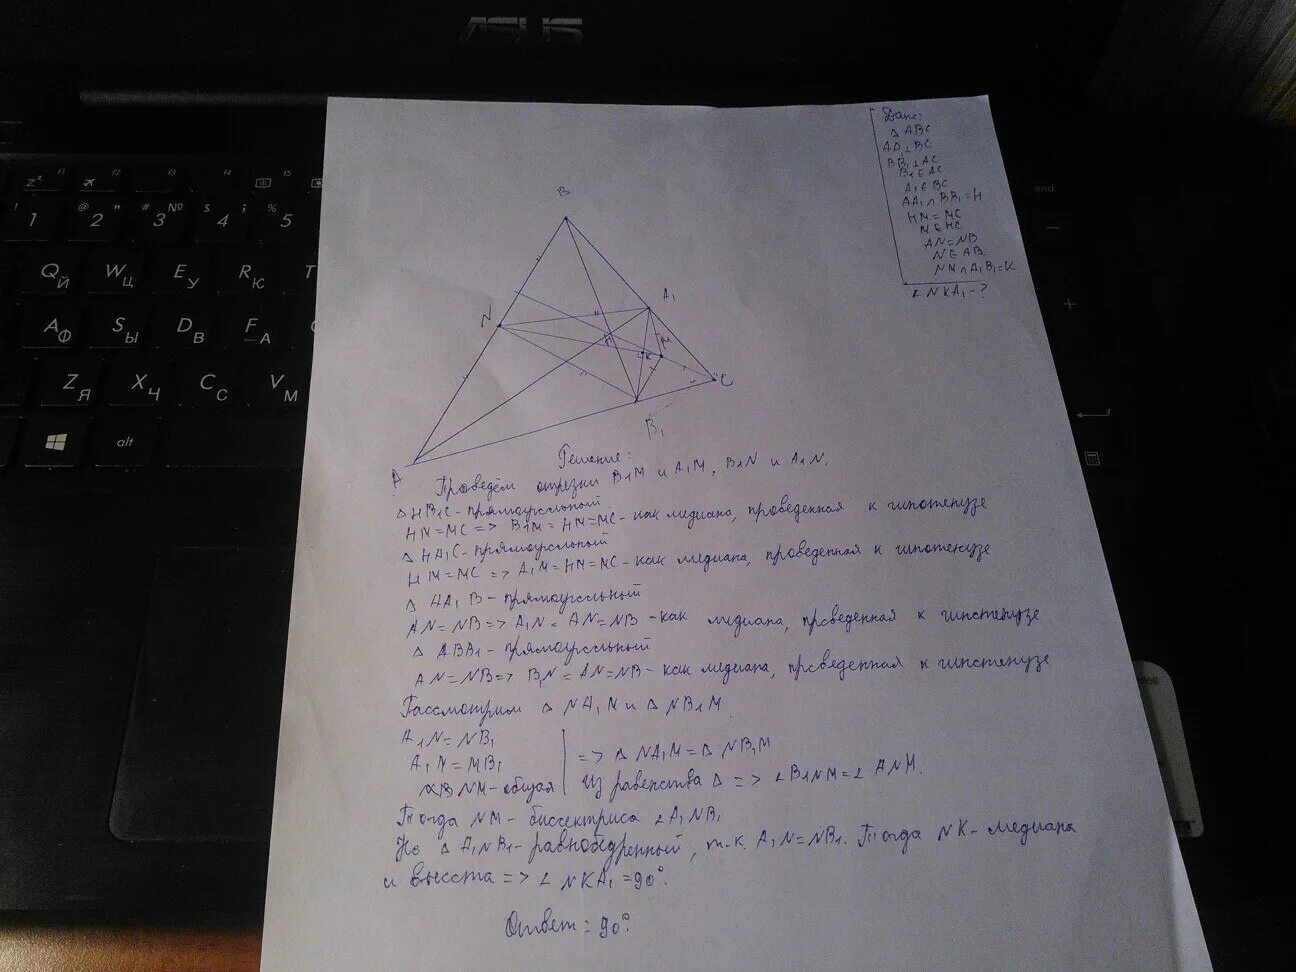 ASUS
Дано:
△ ABC
AA₁⊥BC
BB₁⊥AC
B₁∈AC
A₁∈BC
AA₁∩BB₁=H
HM=MC
M∈HC
AN=NB
N∈AB
NM∩A₁B₁=K
∠NKA₁-?
B
N
A₁
H
K
M
C
B₁
A
Решение:
Проведём отрезки B₁M и A₁M, B₁N и A₁N.
△HB₁C-прямоугольный
HM=MC => B₁M=HM=MC-как медиана, проведенная к гипотенузе
△HA₁C-прямоугольный
HM=MC => A₁M=HM=MC-как медиана, проведенная к гипотенузе
△ AA₁B-прямоугольный
AN=NB=> A₁N=AN=NB-как медиана, проведенная к гипотенузе
△ ABB₁-прямоугольный
AN=NB=> B₁N=AN=NB-как медиана, проведенная к гипотенузе
Рассмотрим △NA₁M и △NB₁M
A₁N=NB₁
A₁M=MB₁
NM-общая
=> △NA₁M=△NB₁M
Из равенства △ => ∠B₁NM=∠A₁NM.
Тогда NM-биссектриса ∠A₁NB₁
Но △A₁NB₁-равнобедренный, т.к. A₁N=NB₁. Тогда NK-медиана
и высота => ∠NKA₁=90°.
Ответ: 90°.
zᶻ F1
F2
F3
F4
F5
! 1
@ 2 "
# 3 №
$ 4 ;
% 5
Q Й
W Ц
E У
R К
T
A Ф
S Ы
D В
F А
Z Я
X Ч
C С
V М
alt
end